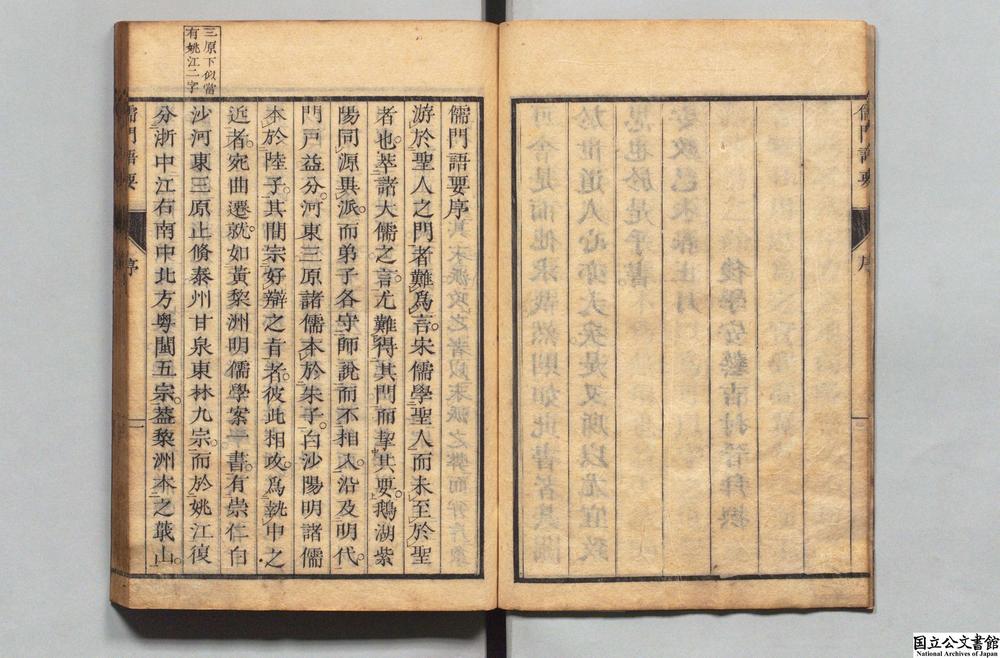 三原下似當
有姚江二字
儒門語要序
游於聖人之門者難爲言。宋儒學聖人而未至於聖
者也。萃諸大儒之言。尤難得其門而挈其要。鵝湖紫
陽同源異派。而弟子各守師說而不相入。沿及明代。
門戸益分。河東三原諸儒本於朱子。白沙陽明諸儒
本於陸子。其間宗好辯之旨者。彼此相攻。爲執中之
近者。宛曲遷就。如黃黎洲明儒學案一書。有崇仁白
沙河東三原止脩泰州甘泉東林九宗。而於姚江復
分浙中江右南中北方粤閩五宗。葢黎洲本之蕺山。
儒門語要
序
一
儒門語要
序
国立公文書館
National Archives of Japan